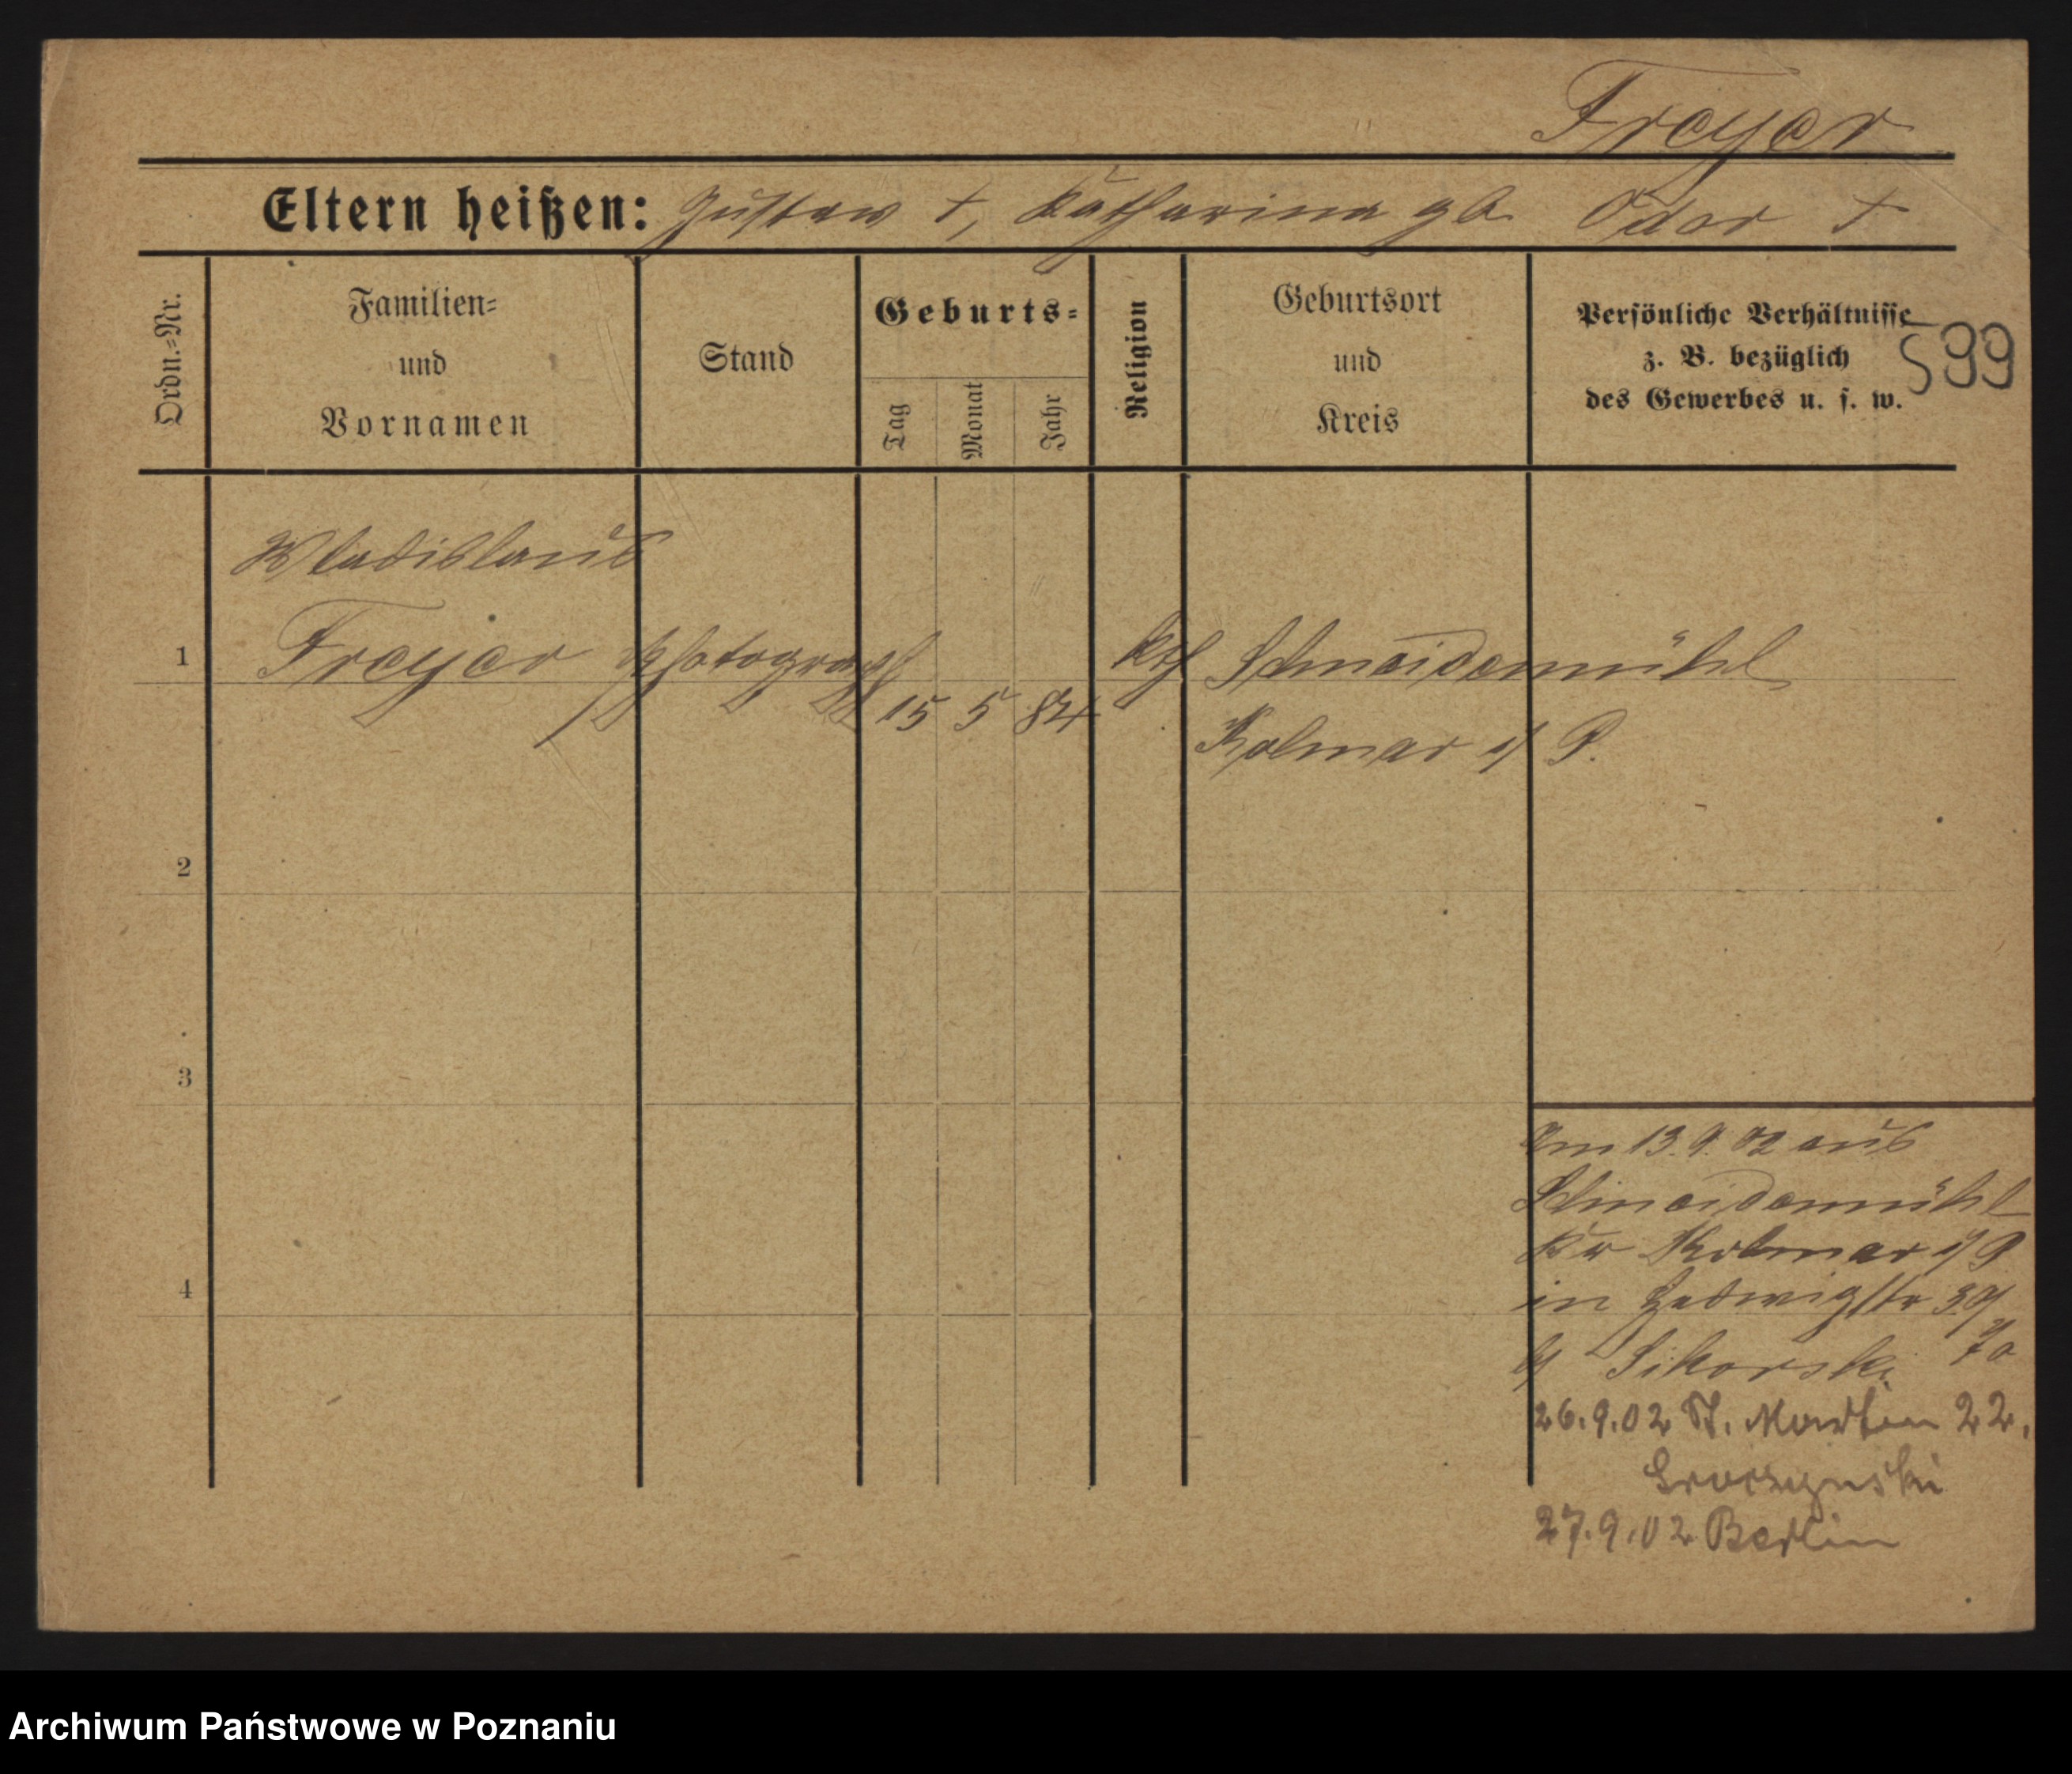 Freyer
Eltern heißen: Gustaw †, Katharina gb. Oder †
Ordn.-Nr.
Familien-
und
Vornamen
Stand
Geburts-
Tag
Monat
Jahr
Religion
Geburtsort
und
Kreis
Persönliche Verhältnisse
z. B. bezüglich
des Gewerbes u. s. w.
599
Wladislaus
1 Freyer Photograph kth Schneidemühl
15 5 84
Kolmar i/ P.
2
3
4
Am 13.9.02 aus
Schneidemühl
Kr Kolmar i/ P
in Hedwigstr
b/ Sikorski
26.9.02 St. Martin 22.
27.9.02 Berlin
Archiwum Państwowe w Poznaniu